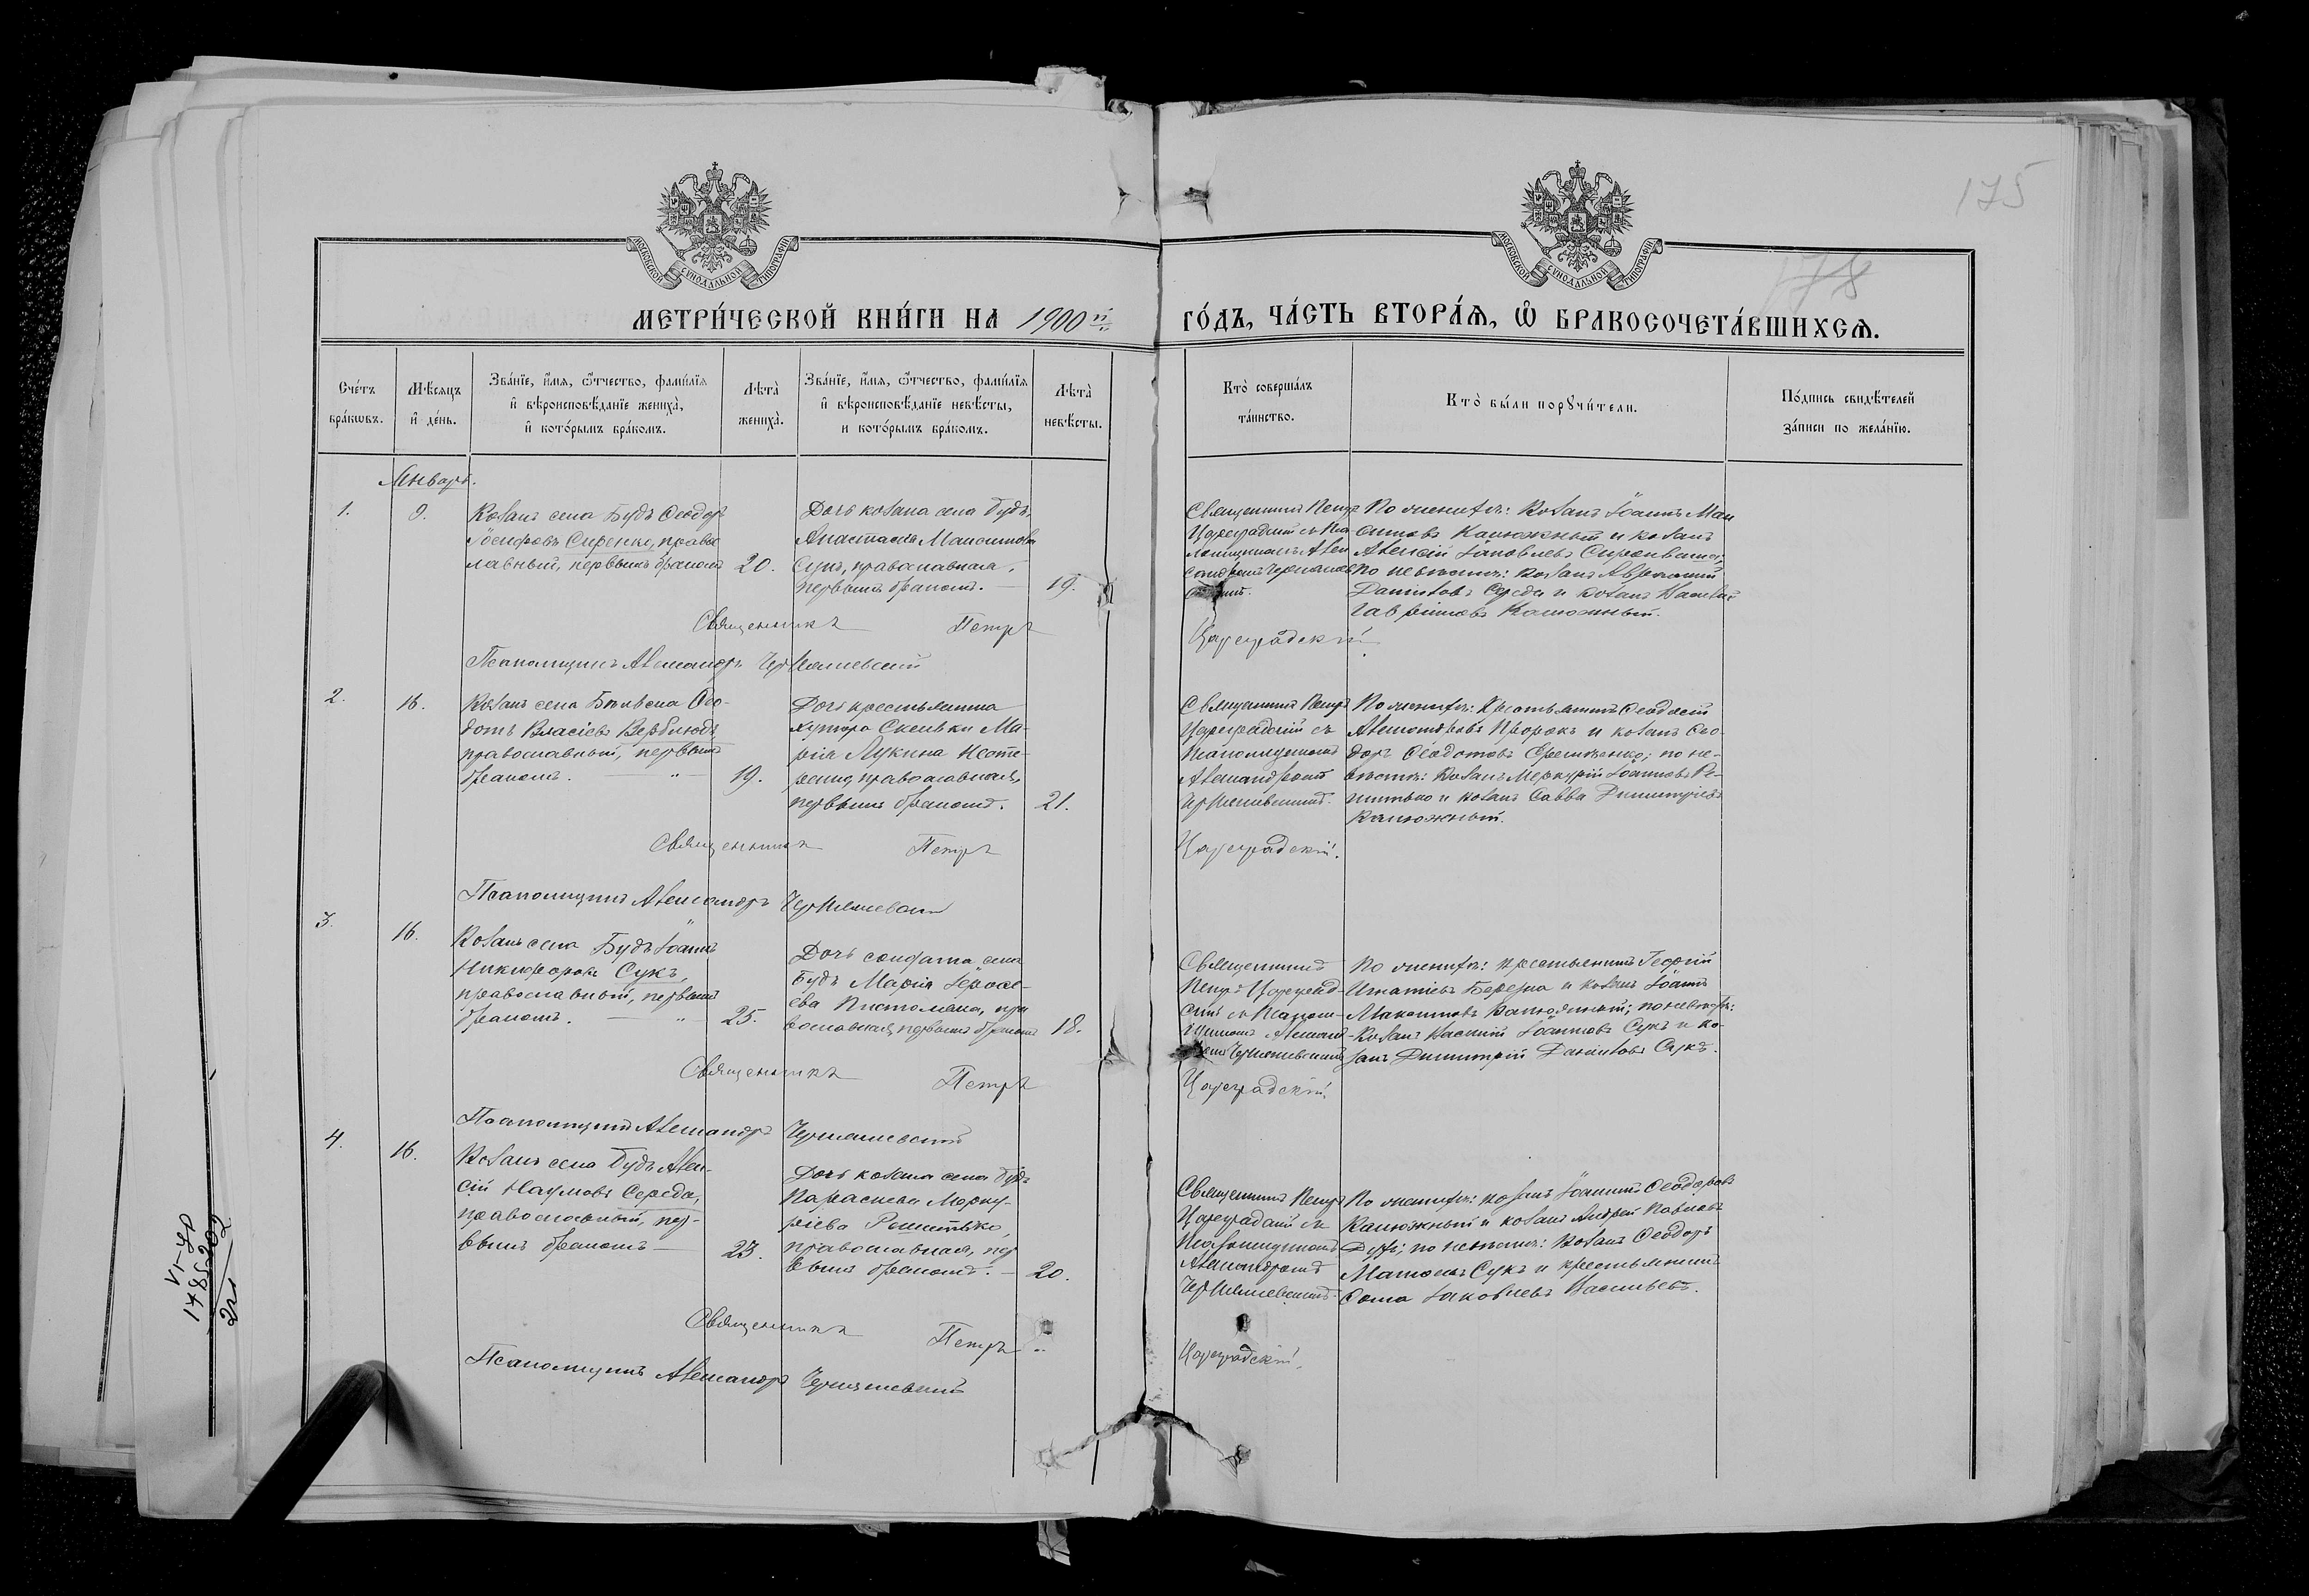 175
178
МОСКОВСКОЙ СѴНОДАЛЬНОЙ ТИПОГРАФІИ
МОСКОВСКОЙ СѴНОДАЛЬНОЙ ТИПОГРАФІИ
МЕТРИ́ЧЕСКОЙ КНИ́ГИ НА 1900 й ГО́ДЪ, ЧА́СТЬ ВТОРА́Ѧ, Ѡ҆ БРАКОСОЧЕТА́ВШИХСѦ.
Сче́тъ бра́кѡвъ.
Мѣ́сѧцъ и҆ де́нь.
Зва́нїе, и҆́мѧ, ѻ҆́тчество, фами́лїѧ
и҆ вѣроисповѣ́данїе жениха̀,
и҆ кото́рымъ бра́комъ.
Лѣта̀ жениха̀.
Зва́нїе, и҆́мѧ, ѻ҆́тчество, фами́лїѧ
и҆ вѣроисповѣ́данїе невѣ́сты,
и кото́рымъ бра́комъ.
Лѣта̀ невѣ́сты.
Кто̀ соверша́лъ та́инство.
Кто̀ бы́ли порꙋчи́тели.
По́дпись свидѣ́телей за́писи по жела́нїю.
Январь.
1.
9.
Козакъ села Будъ Ѳеодоръ
Іосифовъ Сиренко, правос
лавный, первымъ бракомъ
20.
Дочь козака села Будъ,
Анастасія Максимова
Сукъ, православная,
первымъ бракомъ.
19.
Священникъ Петръ
Цареградскій съ Пса
ломщикомъ Алек
сандромъ Чернявс
По женихѣ: Козакъ Іоаннъ Мак
симовъ Калюжный и козакъ
Алексій Іаковлевъ
по невѣстѣ: козакъ
Даниловъ Середа и козакъ
Гавріиловъ Калюжный.
Священникъ Петръ Цареградскій
Псаломщикъ Александръ Чернявскій
2.
16.
Козакъ села Ѳео-
дотъ Власіевъ Верблюдъ,
православный, первымъ
бракомъ.
19.
Дочь крестьянина
хутора Скельки Ма-
рія Лукина Несте-
ренко, православная,
первымъ бракомъ.
21.
Священникъ Петръ
Цареградскій съ
Псаломщикомъ
Александромъ
По женихѣ: Крестьянинъ Ѳеодосій
Александровъ Пророкъ и козакъ Ѳео-
доръ Ѳеодотовъ; по не-
вѣстѣ: Козакъ Меркурій Іоанновъ Рѣ-
шитько и козакъ Савва Димитріевъ
Калюжный.
Священникъ Петръ Цареградскій.
Псаломщикъ Александръ
3.
16.
Козакъ села Будъ Іоаннъ
Никифоровъ Сукъ,
православный, первымъ
бракомъ.
25.
Дочь солдата села
Будъ Марія
ева, пра
вославная, первымъ бракомъ
18.
Священникъ
Петръ Цареград-
скій съ Псалом-
щикомъ Алексан-
По женихѣ: крестьянинъ Георгій
Игнатіевъ Береза и козакъ Іоаннъ
Максимовъ Калюжный; по невѣстѣ:
Козакъ Василій Іоанновъ Сукъ и ко-
закъ Димитрій Даніиловъ Сукъ.
Священникъ Петръ Цареградскій
Псаломщикъ Александръ
4.
16.
Козакъ села Будъ Алек-
сій Наумовъ Середа,
православный, пер-
вымъ бракомъ
23.
Дочь козака села Будъ
Параскева Мерку-
ріева Рѣшитько,
православная, пер
вымъ бракомъ.
20.
Священникъ Петръ
Цареградскій съ
Псаломщикомъ
Александромъ
По женихѣ: козакъ Іоаннъ Ѳеодоровъ
Калюжный и козакъ Андрей Павловъ
; по невѣстѣ: Козакъ Ѳеодоръ
Сукъ и крестьянинъ
Ѳома Іаковлевъ Васильевъ.
Священникъ Петръ Цареградскій.
Псаломщикъ Александръ